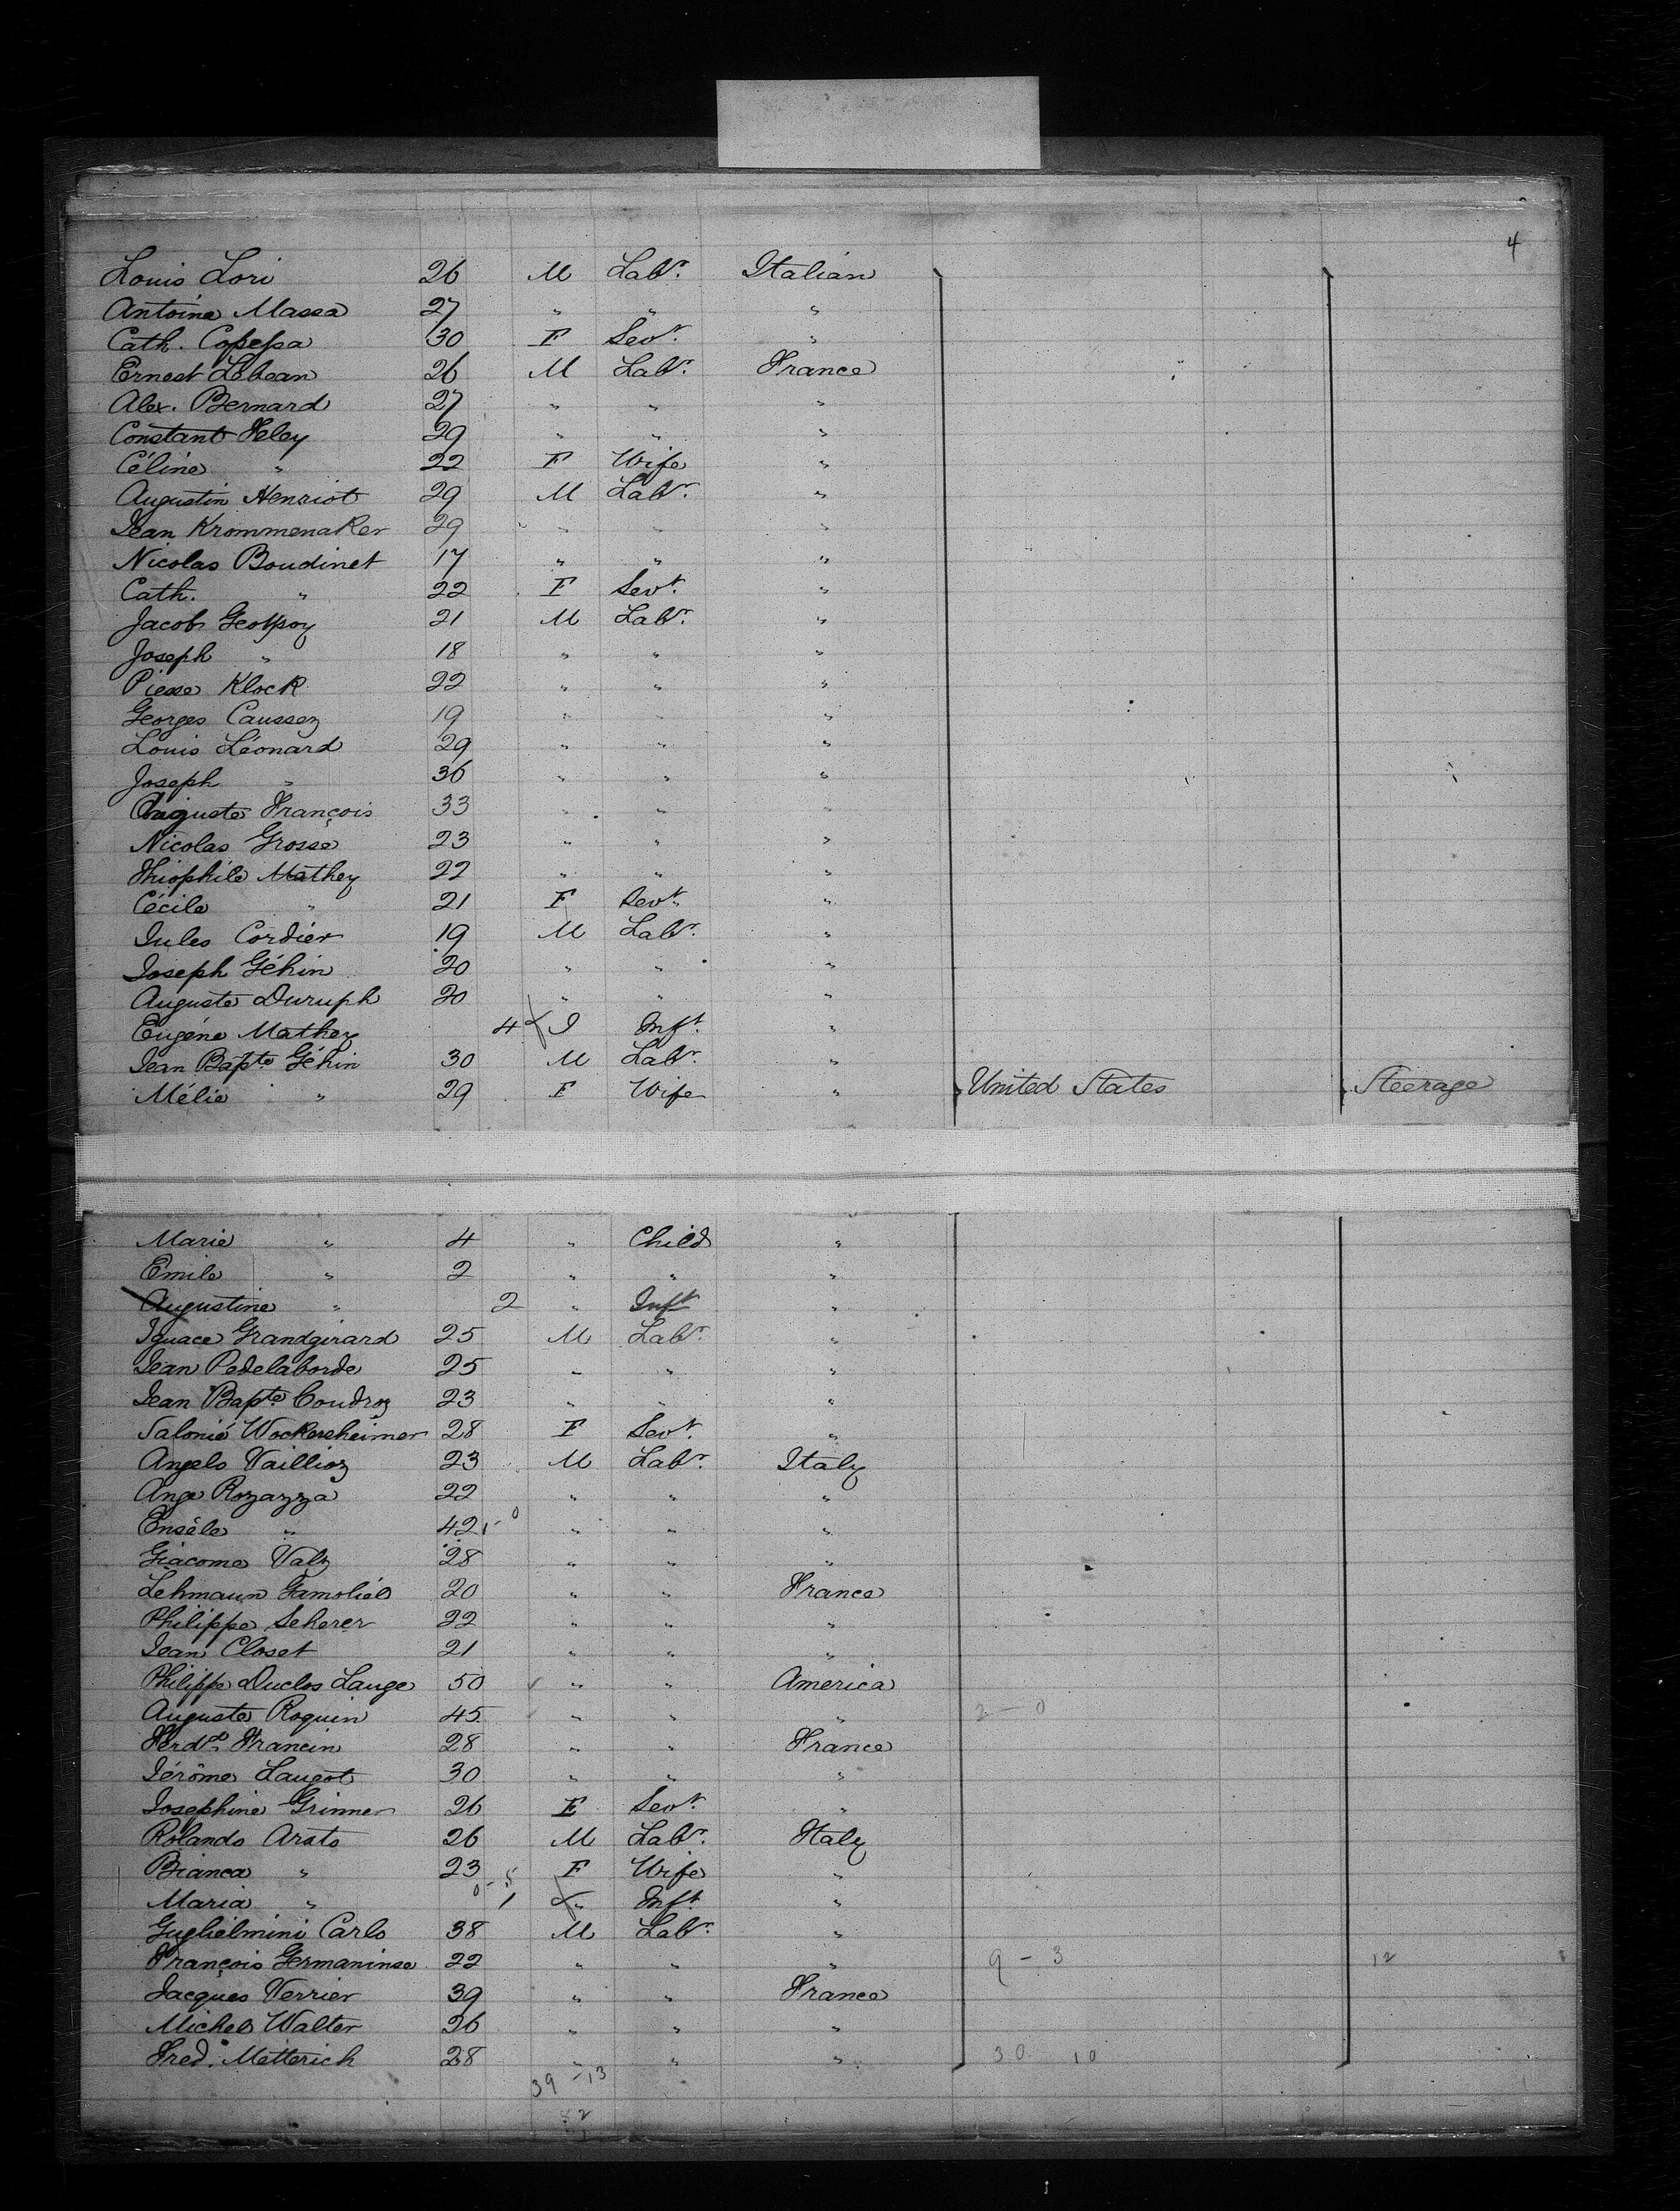 4
Louis Lori 26 M Labr. Italian
Antoine Massa 27 " " "
Cath. 30 F Sevt. "
Ernest Lebean 26 M Labr. France
Alex. Bernard 27 " " "
Constant Feley 29 " " "
Céline " 22 F Wife "
Augustin Henriot 29 M Labr. "
Jean Krommenaker 29 " " "
Nicolas Boudinet 17 " " "
Cath. " 22 F Sevt. "
Jacob 21 M Labr. "
Joseph " 18 " " "
Pierre Klock 22 " " "
Georges Caussez 19 " " "
Louis Léonard 29 " " "
Joseph " 36 " " "
Auguste François 33 " " "
Nicolas Grosse 23 " " "
Thiophile Mathey 22 " " "
Cécile " 21 F Sevt. "
Jules Cordier 19 M Labr. "
Joseph Géhin 20 " " "
Auguste Duruph 20 " " "
Eugéne Mathey 4 I Inft. "
Jean Bapte Géhin 30 M Labr. "
Mélie " 29 F Wife " United States Steerage
Marie " 4 " Child "
Emile " 2 " " "
Augustine " 2 " Inft "
Ignace Grandgirard 25 M Labr. "
Jean Pedelaborde 25 " " "
Jean Bapte Coudroy 23 " " "
Salonié Wockersheimer 28 F Sevt. "
Angelo Vaillioz 23 M Labr. Italy
Ange Rozazza 22 " " "
Enséle " 42 1-0 " " "
Giacome Valz 28 " " "
Lehmaun Gamoliel 20 " " France
Philippe Scherer 22 " " "
Jean Closet 21 " " "
Philippe Duclos Lange 50 " " America
Auguste Roquin 45 " " " 2-0
Ferdd. Francin 28 " " France
Jérôme Laugot 30 " " "
Josephine Grinner 26 F Sevt. "
Rolando Arato 26 M Labr. Italy
Bianca " 23 F Wife "
Maria " 1 " Inft "
Guglielmini Carlo 38 M Labr. "
François Germaninse 22 " " " 9-3 12
Jacques Verrier 39 " " France
Michel Walter 26 " " "
Fred. Metterich 28 " " " 30 10
39-13
52